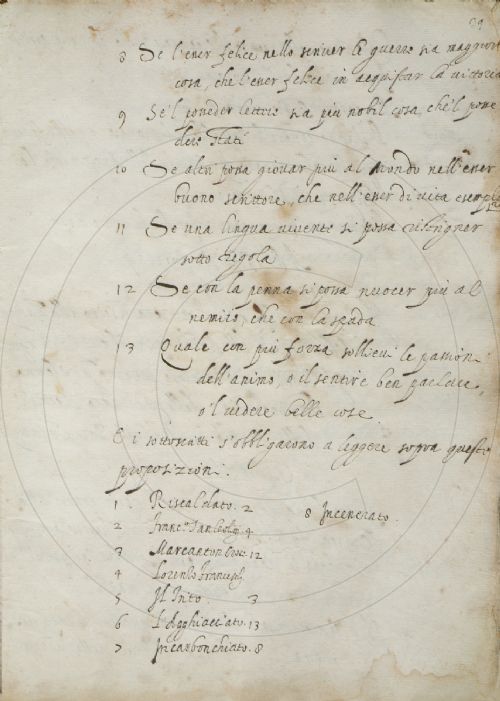 39
8 Se l'esser felice nello scriver le guerre sia maggior
cosa, che l'esser felice in acquistar la vittoria
9 Se'l posseder lettere sia più nobil cosa, che'l posse
dere stati
10 Se altri possa giovar più al mondo nell'esser
buono scrittore, che nell'esser di vita
11 Se una lingua vivente si possa ristrigner
sotto regola
12 Se con la penna si possa nuocer più al
nemico, che con la spada
13 Quale con più forza sollievi le passioni
dell'animo, o il sentire ben parlare,
o'l vedere belle cose
E i sottoscritti s'obbligarono a leggere sopra queste
proposizioni.
1 Riscaldato. 2
8 Incenerato.
2 Franc.o 4
3 Marcanton 12
4 Lorenzo Franceschi
5 Il 3
6 L'Agghiacciato. 13
7 Incarbonchiato. 8